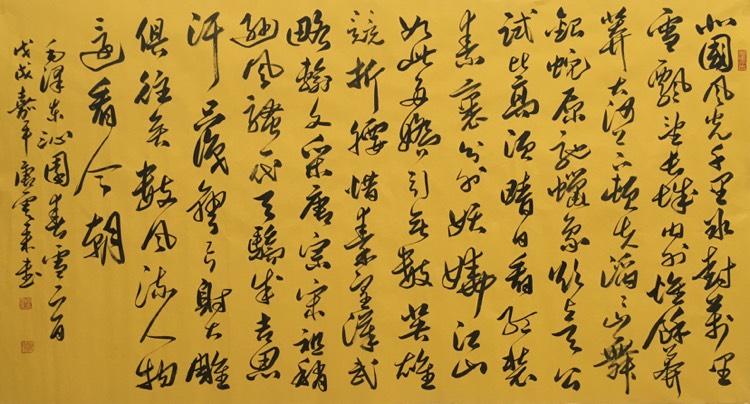 北國風光千里冰封萬里
雪飄望長城內外惟餘莽
莽大河上下頓失滔滔山舞
銀蛇原馳蠟象欲與天公
試比高須晴日看紅裝
素裹分外妖嬈江山
如此多嬌引無數英雄
競折腰惜秦皇漢武
略輸文采唐宗宋祖稍
遜風騷一代天驕成吉思
汗只識彎弓射大雕
俱往矣數風流人物
還看今朝
毛澤東沁園春雪一首
戊戌嘉平唐雲來書